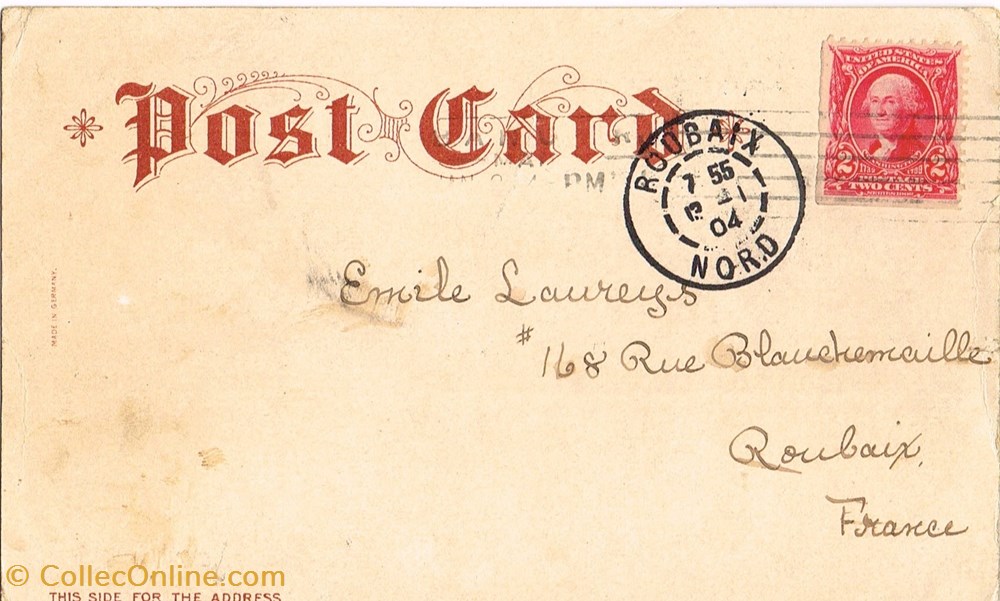 Post Card
UNITED STATES
OF AMERICA
2 WASHINGTON 2
1732 1799
POSTAGE
TWO CENTS
SERIES 1902
PM
ROUBAIX
7 55
04
NORD
MADE IN GERMANY.
Emile Laureys
# 168 Rue Blauchemaille
Roubaix,
France
© CollecOnline.com
THIS SIDE FOR THE ADDRESS